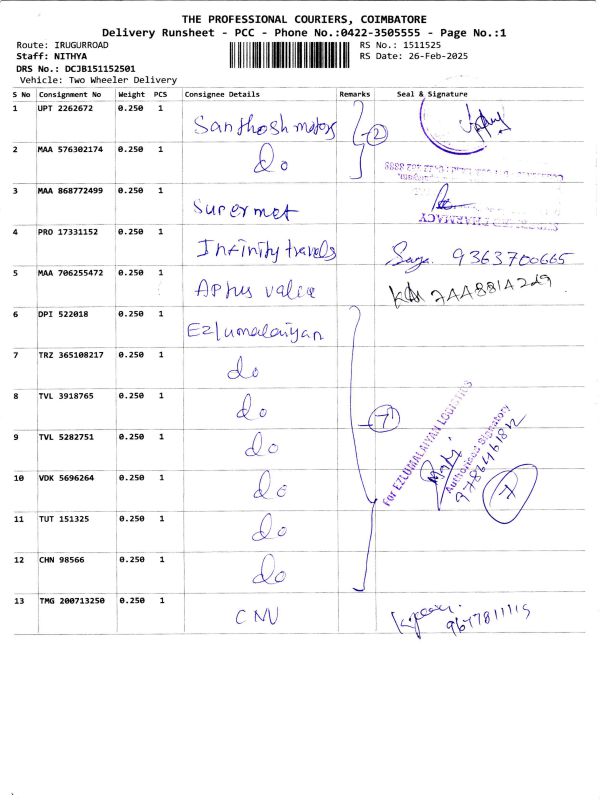 THE PROFESSIONAL COURIERS, COIMBATORE
Delivery Runsheet - PCC - Phone No.:0422-3505555 - Page No.:1
Route: IRUGURROAD
RS No.: 1511525
Staff: NITHYA
RS Date: 26-Feb-2025
DRS No.: DCJB151152501
Vehicle: Two Wheeler Delivery
S No Consignment No Weight PCS Consignee Details Remarks Seal & Signature
1 UPT 2262672 0.250 1 Santhosh motors
2 MAA 576302174 0.250 1 do
2
3 MAA 868772499 0.250 1 Supermet
PHARMACY
4 PRO 17331152 0.250 1 Infinity travels 9363700665
5 MAA 706255472 0.250 1 Aptus value
6 DPI 522018 0.250 1 Ezlumalaiyan
7 TRZ 365108217 0.250 1 do
8 TVL 3918765 0.250 1 do
7
9 TVL 5282751 0.250 1 do
For EZLUMALAIYAN LOGISTICS
Authorised Signatory
10 VDK 5696264 0.250 1 do
7
11 TUT 151325 0.250 1 do
12 CHN 98566 0.250 1 do
13 TMG 200713250 0.250 1 CNU